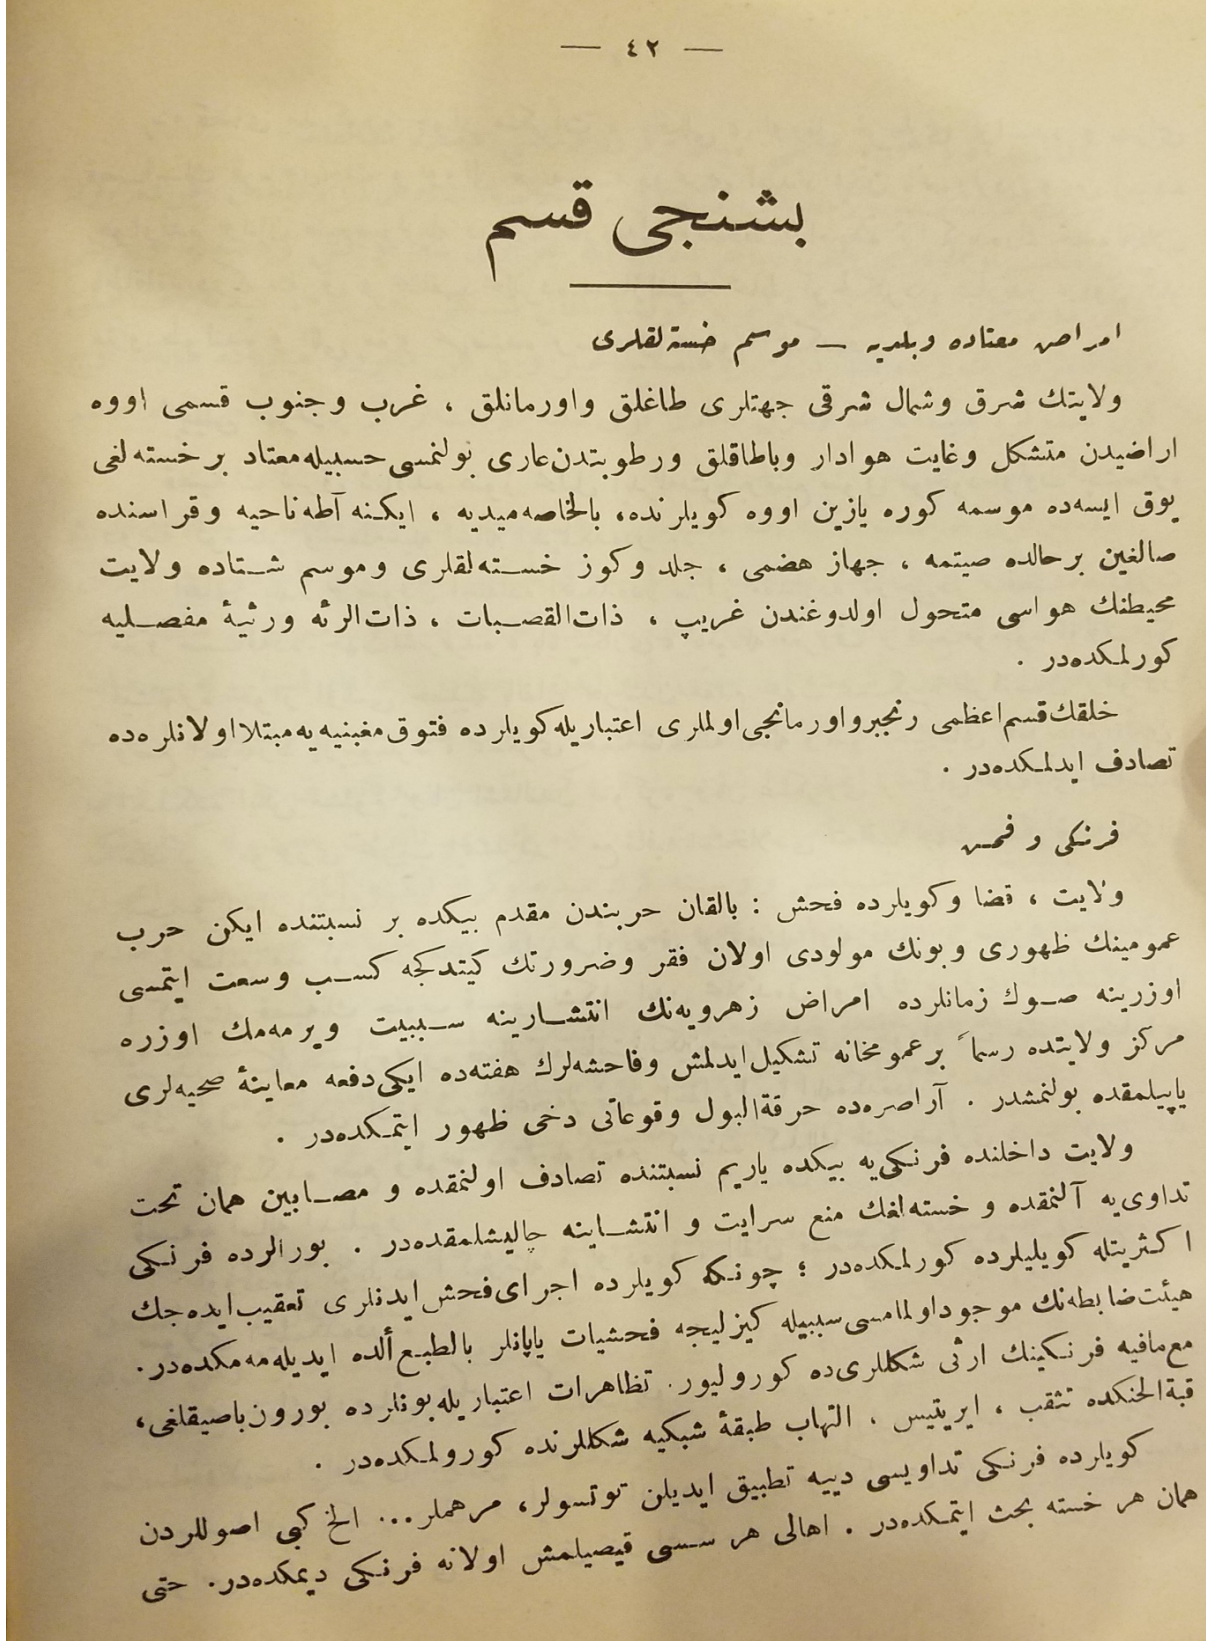 — ٤٢ —
بشنجی قسم
امراض معتاده و بلدیه — موسم خسته‌لقلری
ولایتك شرق وشمال شرقی جهتلری طاغلق واورمانلق ، غرب وجنوب قسمی اووه
اراضیدن متشكل وغایت هوادار وباطاقلق ورطوبتدن عاری بولنمسی حسبیله معتاد بر خسته‌لغی
یوق ایسه‌ده موسمه كوره یازین اووه كویلرنده، بالخاصه میدیه ، ایكنه آطه ناحیه وقراسنده
صالغین برحالده صیتمه ، جهاز هضمی ، جلد وكوز خسته‌لقلری وموسم شتاده ولایت
محیطنك هواسی متحول اولدوغندن غریپ ، ذات‌القصبات ، ذات‌الرئه ورثیۀ مفصلیه
كورلمكده‌در .
خلقك قسم اعظمی رنجبر واورمانجی اولملری اعتباریله كویلرده فتوق مغبنیه‌یه مبتلا اولانلره‌ده
تصادف ایدلمكده‌در .
فرنكی و فحش
ولایت ، قضا وكویلرده فحش : بالقان حربندن مقدم بیكده بر نسبتنده ایكن حرب
عمومینك ظهوری وبونك مولودی اولان فقر وضرورتك كیتدكجه كسب وسعت ایتمسی
اوزرینه صوك زمانلرده امراض زهرویه‌نك انتشارینه سببیت ویرمه‌مك اوزره
مركز ولایتده رسماً بر عمومخانه تشكیل ایدلمش وفاحشه‌لرك هفته‌ده ایكی دفعه معاینۀ صحیه‌لری
یاپیلمقده بولنمشدر . آراصره‌ده حرقةالبول وقوعاتی دخی ظهور ایتمكده‌در .
ولایت داخلنده فرنكی‌یه بیكده یاریم نسبتنده تصادف اولنمقده و مصابین همان تحت
تداوی‌یه آلنمقده و خسته‌لغك منع سرایت و انتشاینه چالیشلمقده‌در . بورالرده فرنكی
اكثریتله كویلیلرده كورلمكده‌در ؛ چونكه كویلرده اجرای فحش ایدنلری تعقیب ایده‌جك
هیئت ضابطه‌نك موجود اولمامسی سببیله كیزلیجه فحشیات یاپانلر بالطبع ألده ایدیله‌مه‌مكده‌در.
مع‌مافیه فرنكینك ارثی شكللری‌ده كورولیور. تظاهرات اعتباریله بونلرده بورون باصیقلغی،
قبةالحنكده تثقب ، ایریتیس ، التهاب طبقۀ شبكیه شكللرنده كورولمكده‌در .
كویلرده فرنكی تداویسی دییه تطبیق ایدیلن توتسولر، مرهملر... الخ كبی اصوللردن
همان هر خسته بحث ایتمكده‌در . اهالی هر سسی قیصیلمش اولانه فرنكی دیمكده‌در. حتی